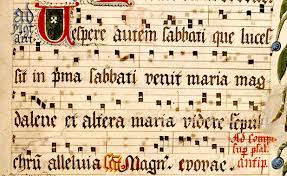 ad
Mag.
ant.
Vespere autem sabbati que luces
sit in prma sabbati venit maria mag
dalene et altera maria videre sepul
chru alleluia Magn. evovae.
Ad comp
sup psal.
antip.